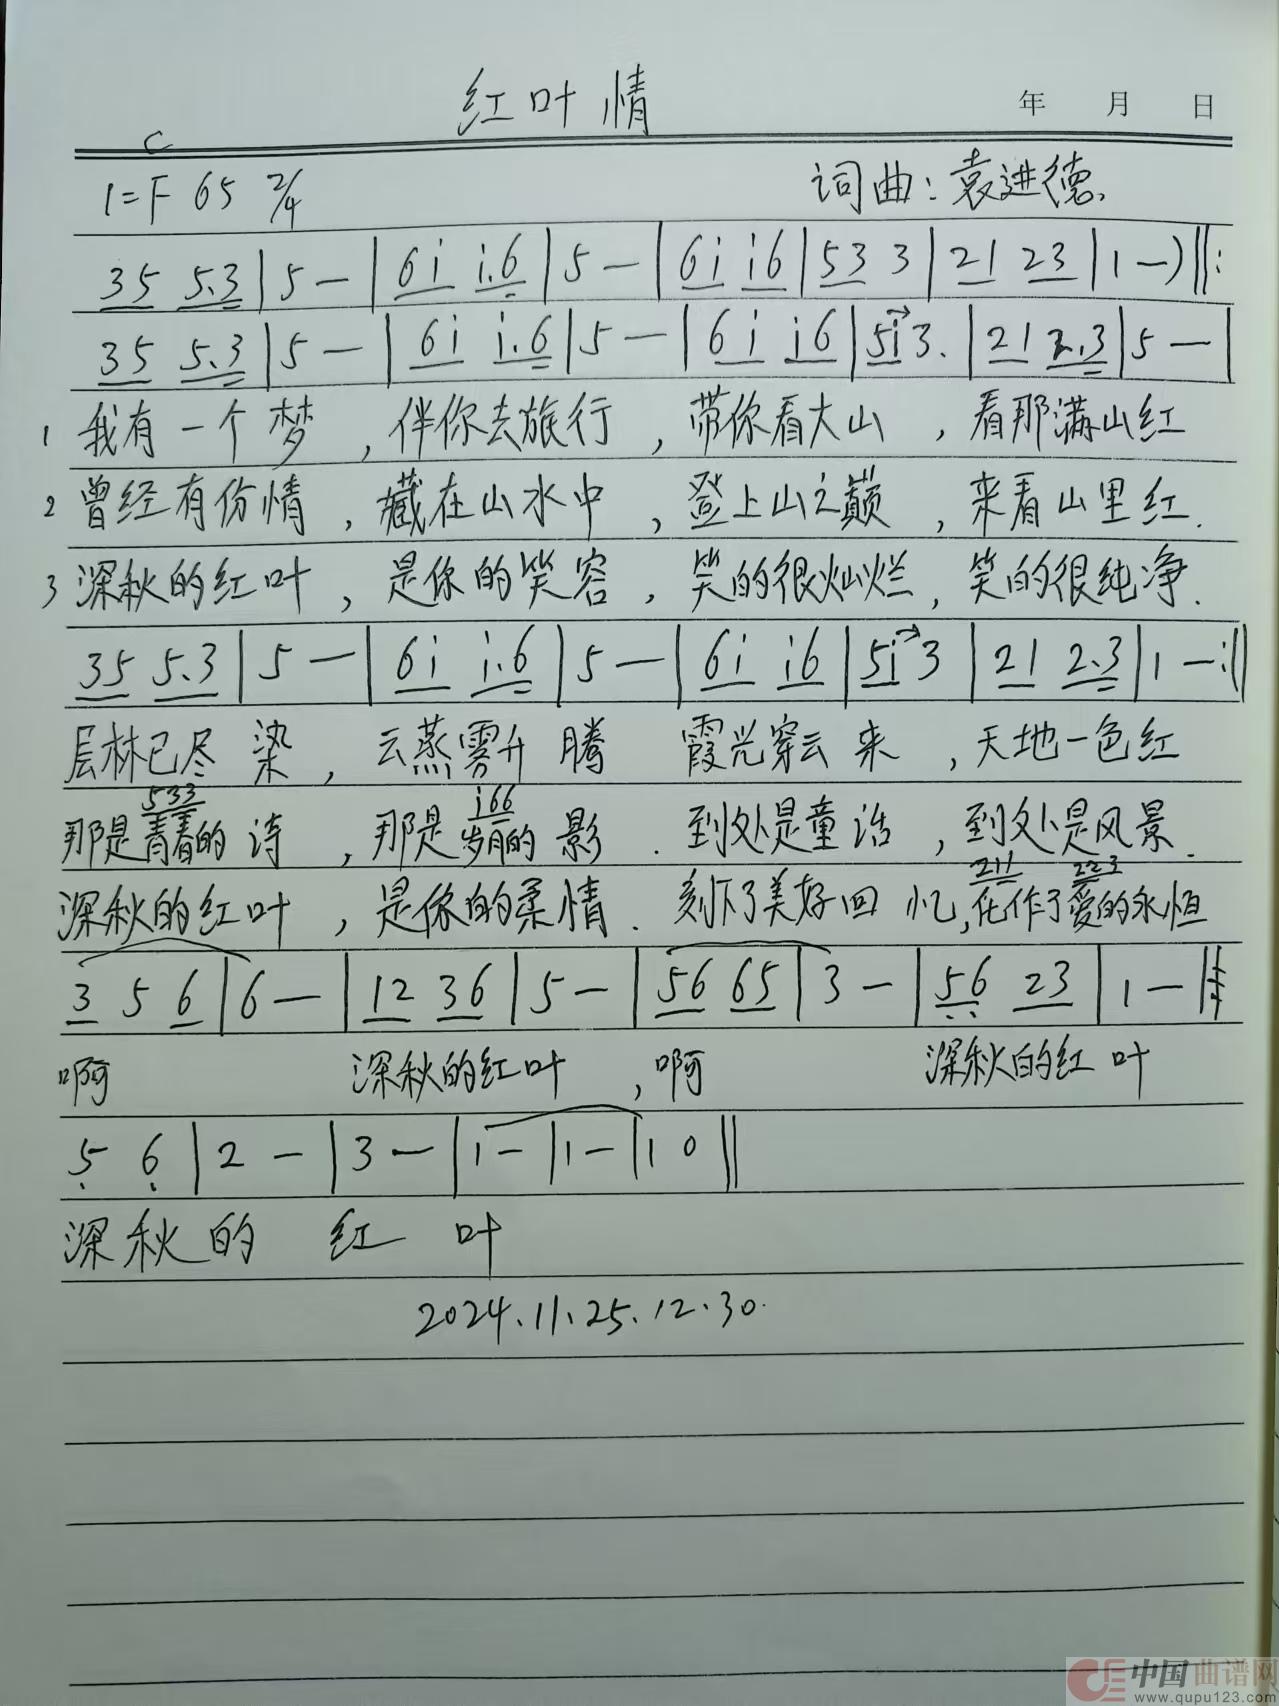 红叶情
年 月 日
C
1=F 65 2/4 词曲:袁进德.
35 5.3 | 5 — | 6i i.6 | 5 — | 6i i6 | 53 3 | 21 23 | 1 —) ‖:
35 5.3 | 5 — | 6i i.6 | 5 — | 6i i6 | 5i 3. | 21 2.3 | 5 — |
1 我有一个梦,伴你去旅行,带你看大山,看那满山红
2 曾经有份情,藏在山水中,登上山之巅,来看山里红.
3 深秋的红叶,是你的笑容,笑的很灿烂,笑的很纯净.
35 5.3 | 5 — | 6i i.6 | 5 — | 6i i6 | 5i 3 | 21 2.3 | 1 — :‖
层林已尽染,云蒸雾升腾 霞光穿云来,天地一色红
533 i66
那是青春的诗,那是岁月的影.到处是童话,到处是风景.
211 223
深秋的红叶,是你的柔情.刻下了美好回忆,化作了爱的永恒
3 5 6 | 6 — | 12 36 | 5 — | 56 65 | 3 — | 56 23 | 1 — ‖
啊 深秋的红叶,啊 深秋的红叶
5 6 | 2 — | 3 — | 1 — | 1 — | 1 0 ‖
深秋的 红 叶
2024.11.25.12.30.
中国曲谱网
www.qupu123.com